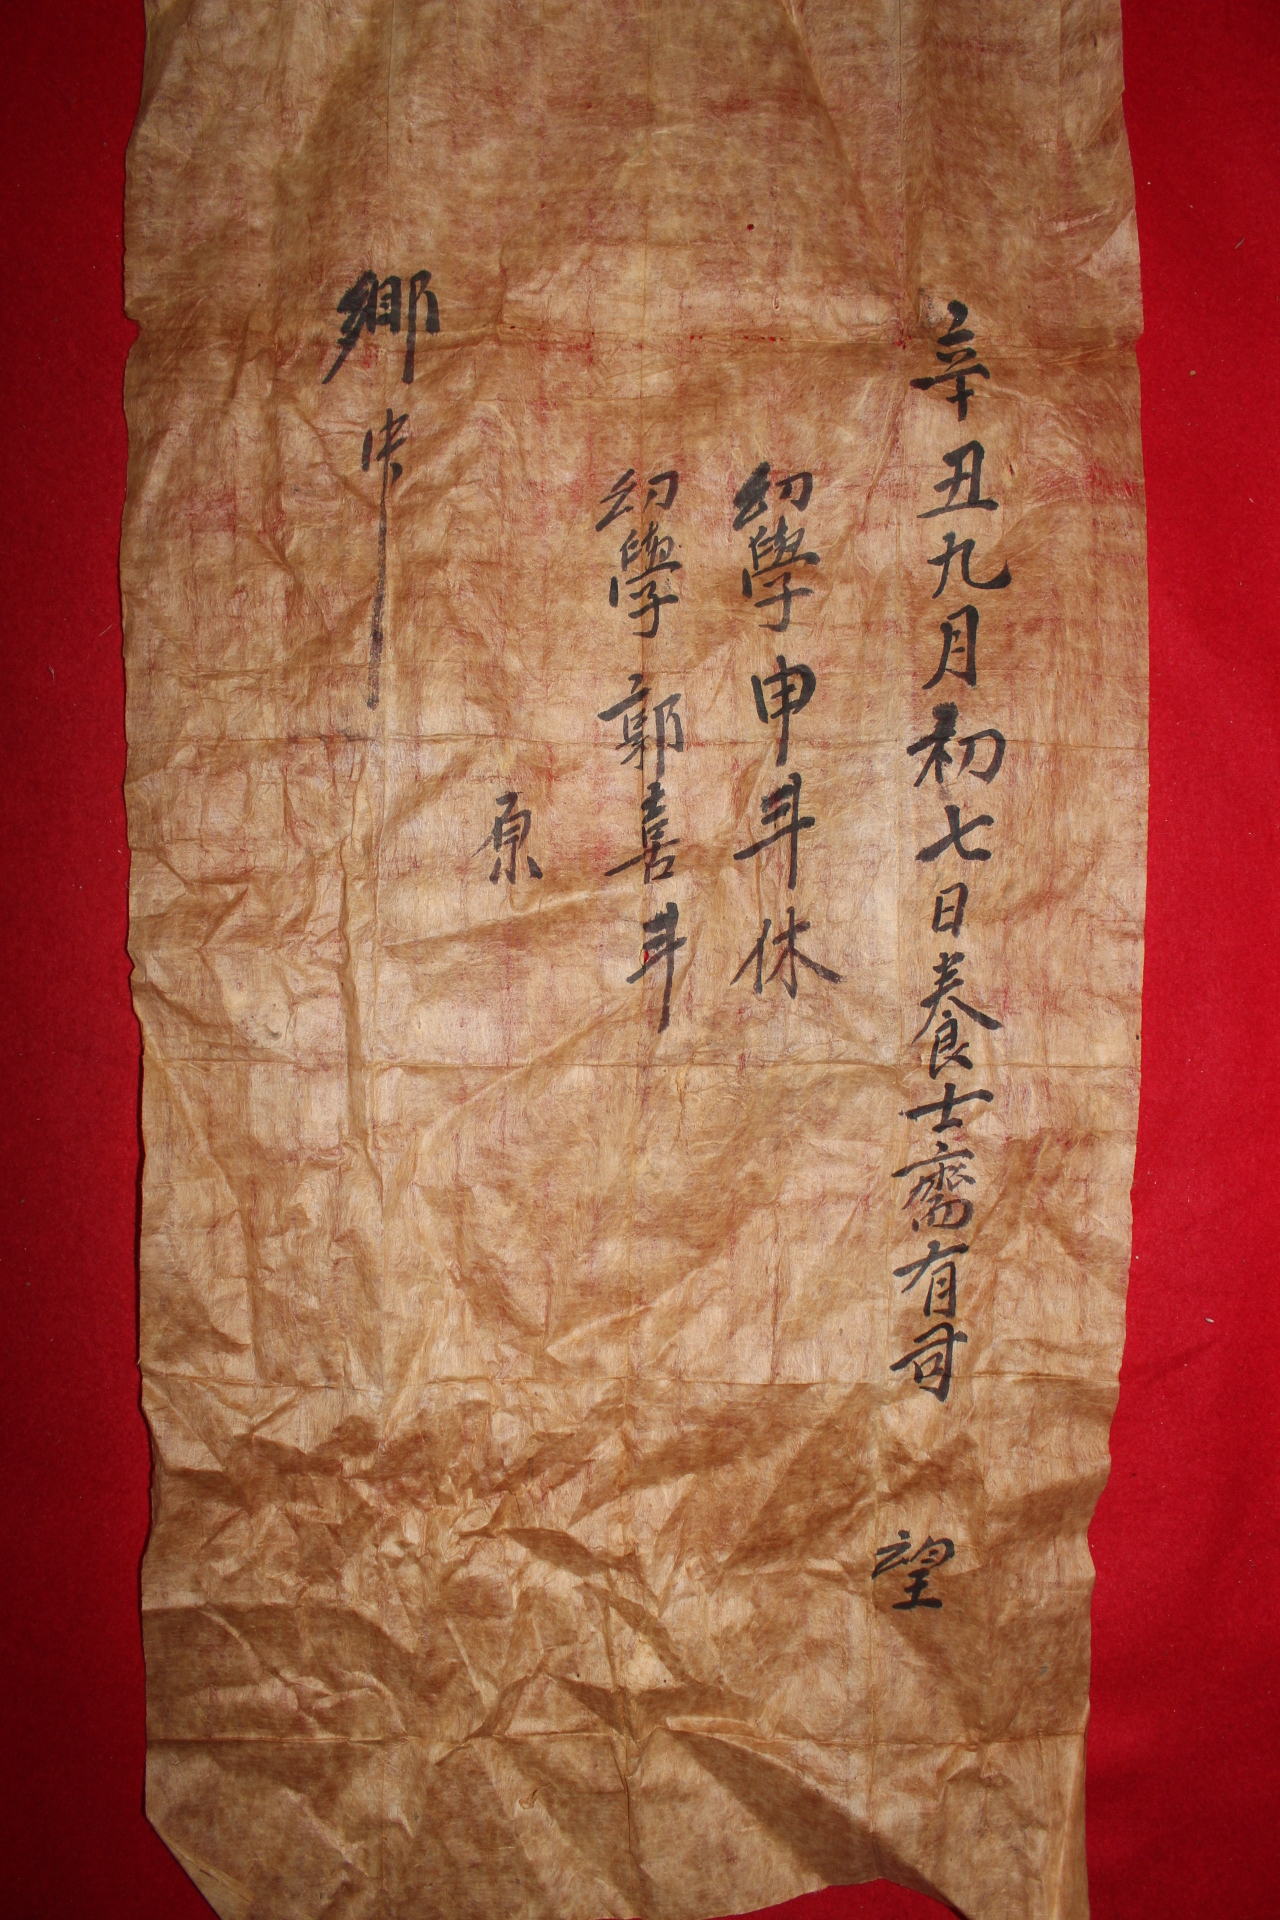 辛丑九月初七日養士齋有司 望
幼學申斗休
幼學郭喜斗
原
鄕中